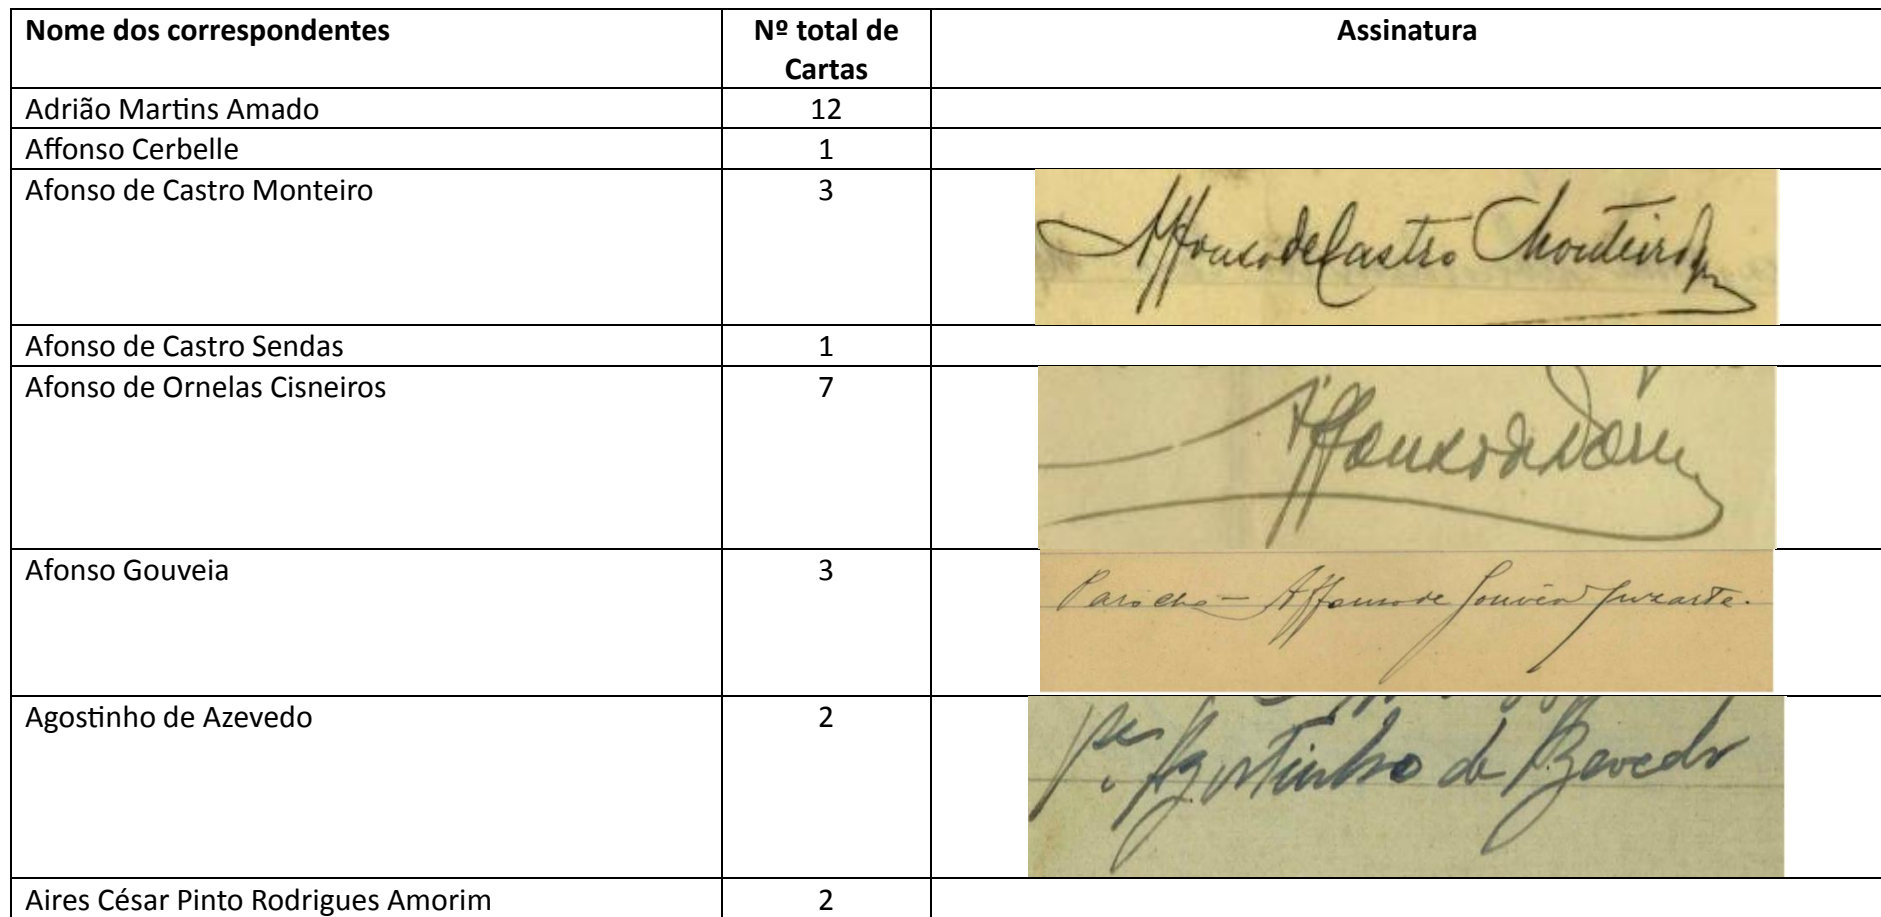 Nome dos correspondentes
Nº total de
Cartas
Assinatura
Adrião Martins Amado
12
Affonso Cerbelle
1
Afonso de Castro Monteiro
3
Affonso de Castro Monteiro
Afonso de Castro Sendas
1
Afonso de Ornelas Cisneiros
7
Affonso de
Afonso Gouveia
3
Parocho - Affonso de Gouvêa Juzarte.
Agostinho de Azevedo
2
Pe. Agostinho de Azevedo
Aires César Pinto Rodrigues Amorim
2